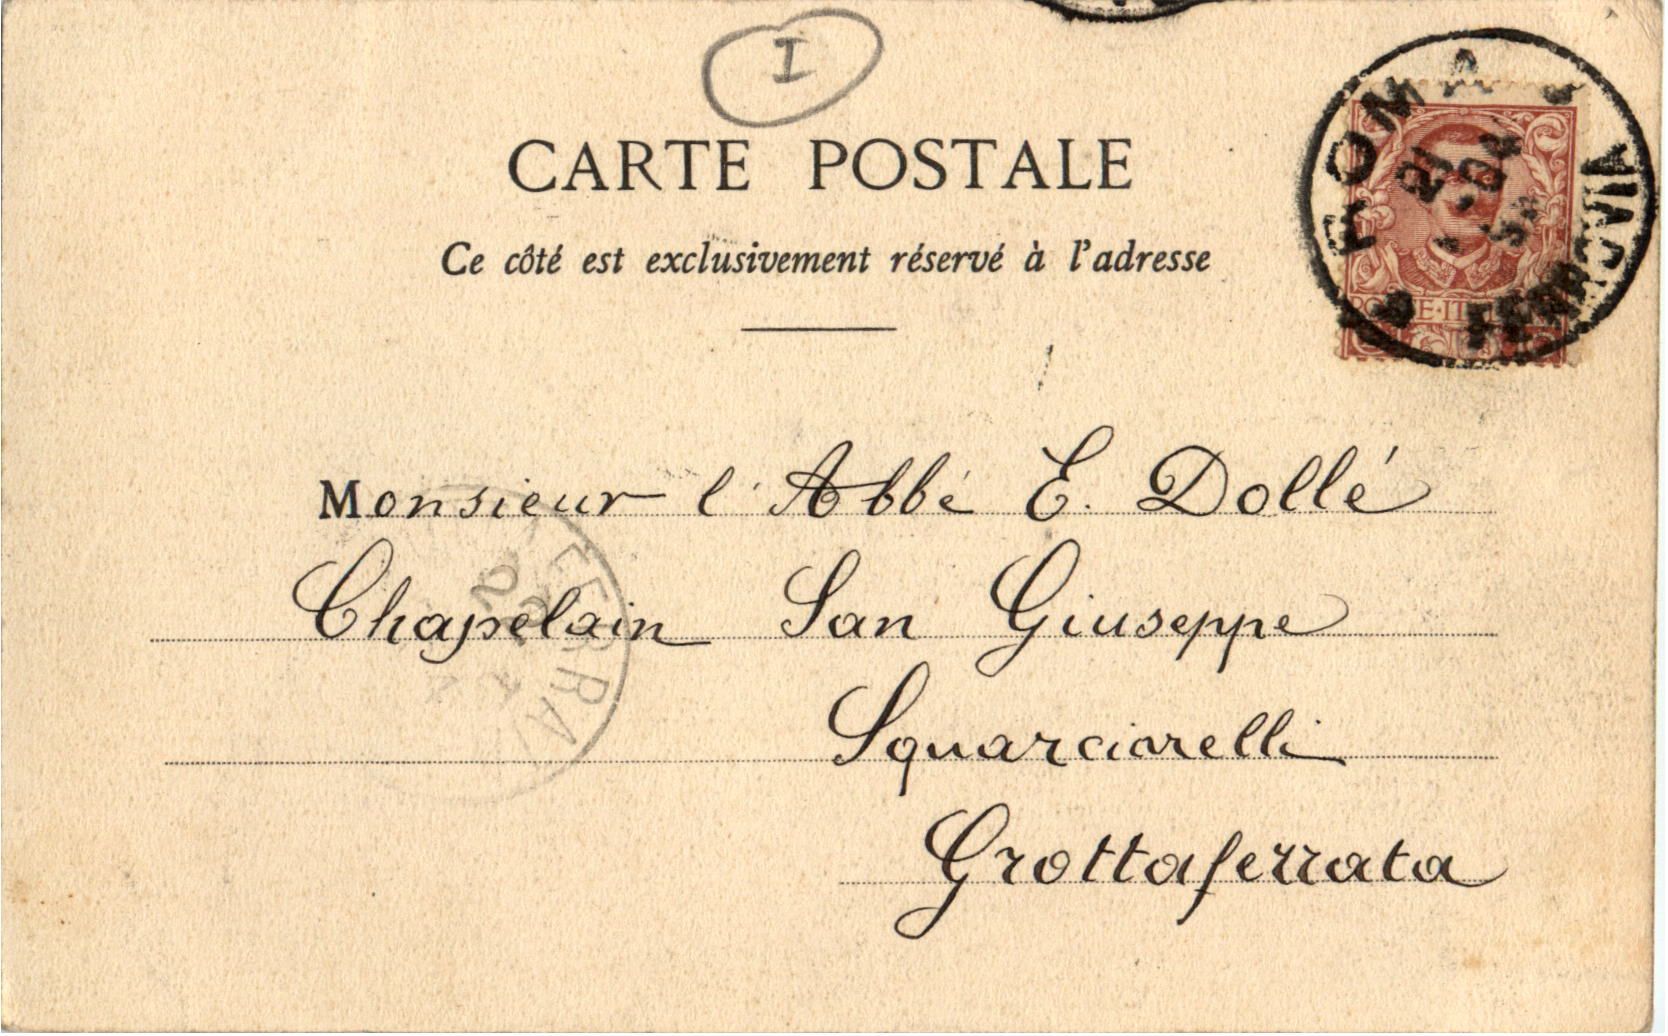 I
CARTE POSTALE
Ce côté est exclusivement réservé à l'adresse
ROMA
FERROVIA
21
04
POSTE ITALIANE
Monsieur l'Abbé E. Dollé
Chapelain San Giuseppe
Squarciarelli
Grottaferrata